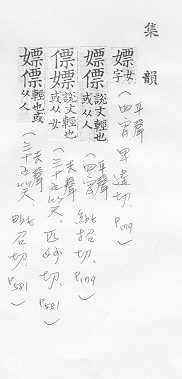 集韻
嫖女字（平聲四宵卑遙切，P.179）
嫖僄說文輕也或从人（平聲四宵紕招切，P.179）
僄嫖說文輕也或从女（去聲三十五笑，匹妙切，P.581）
嫖僄輕也或从人（去聲三十五笑，毗召切，P.581）